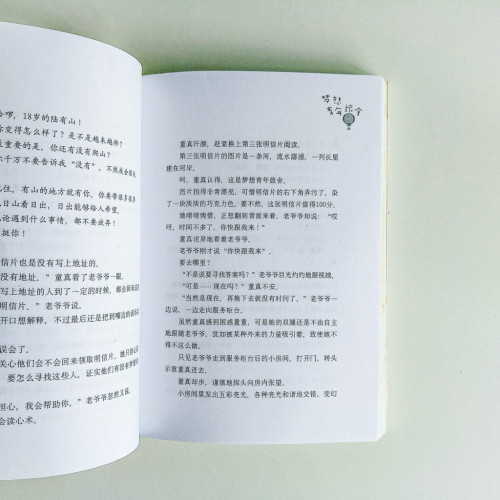 哈啰，18岁的陆有山！
你变得怎么样了？是不是越来越帅？
重要的是，你还有没有爬山？
千万不要告诉我“没有”，不然我会很
住，有山的地方就有你，你要带很多
日山看日出，日出能够给人希望。
论遇到什么事情，都不要放弃！
挺你！
信片也是没有写上地址的。
没有地址。”童真看了老爷爷一眼，
写上地址的人到了一定的时候，都会回来
明信片。”老爷爷说。
开口想解释，不过最后还是把到嘴边的
误会了。
关心他们会不会回来领取明信片，她只担心
要怎么寻找这些人，证实他们有没有
担心，我会帮助你。”老爷爷忽然又说。
会读心术。
梦想青年旅舍
童真汗颜，赶紧换上第三张明信片阅读。
第三张明信片的图片是一条河，流水潺潺，一列长屋
建在河岸。
呵，童真认得，这是梦想青年旅舍。
图片拍得非常漂亮，可惜明信片的右下角弄污了，染
了一块淡淡的巧克力色，要不然，这张明信片值得100分。
她啧啧惋惜，正想翻到背面来看，老爷爷却说：“哎
呀，时间不多了，你快跟我来！”
童真诧异地看着老爷爷。
老爷爷刚才说“你快跟我来”。
要去哪里？
“不是说要寻找答案吗？”老爷爷目光灼灼地凝视她，
“可是……现在吗？”童真不安。
“当然是现在，再拖下去就没有时间了。”老爷爷一边说，
一边走向服务柜台。
虽然童真感到困惑重重，可是她的双腿还是不由自主
地跟随老爷爷，犹如被某种外来的力量吸引着，致使她不
得不这么做。
只见老爷爷走到服务柜台后的小房间，打开门，转头
示意童真进去。
童真却步，谨慎地探头向房内张望。
小房间里发出五彩亮光，各种亮光和谐地交错，变幻